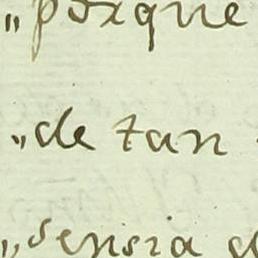 „porque
„de tan
„sensia d